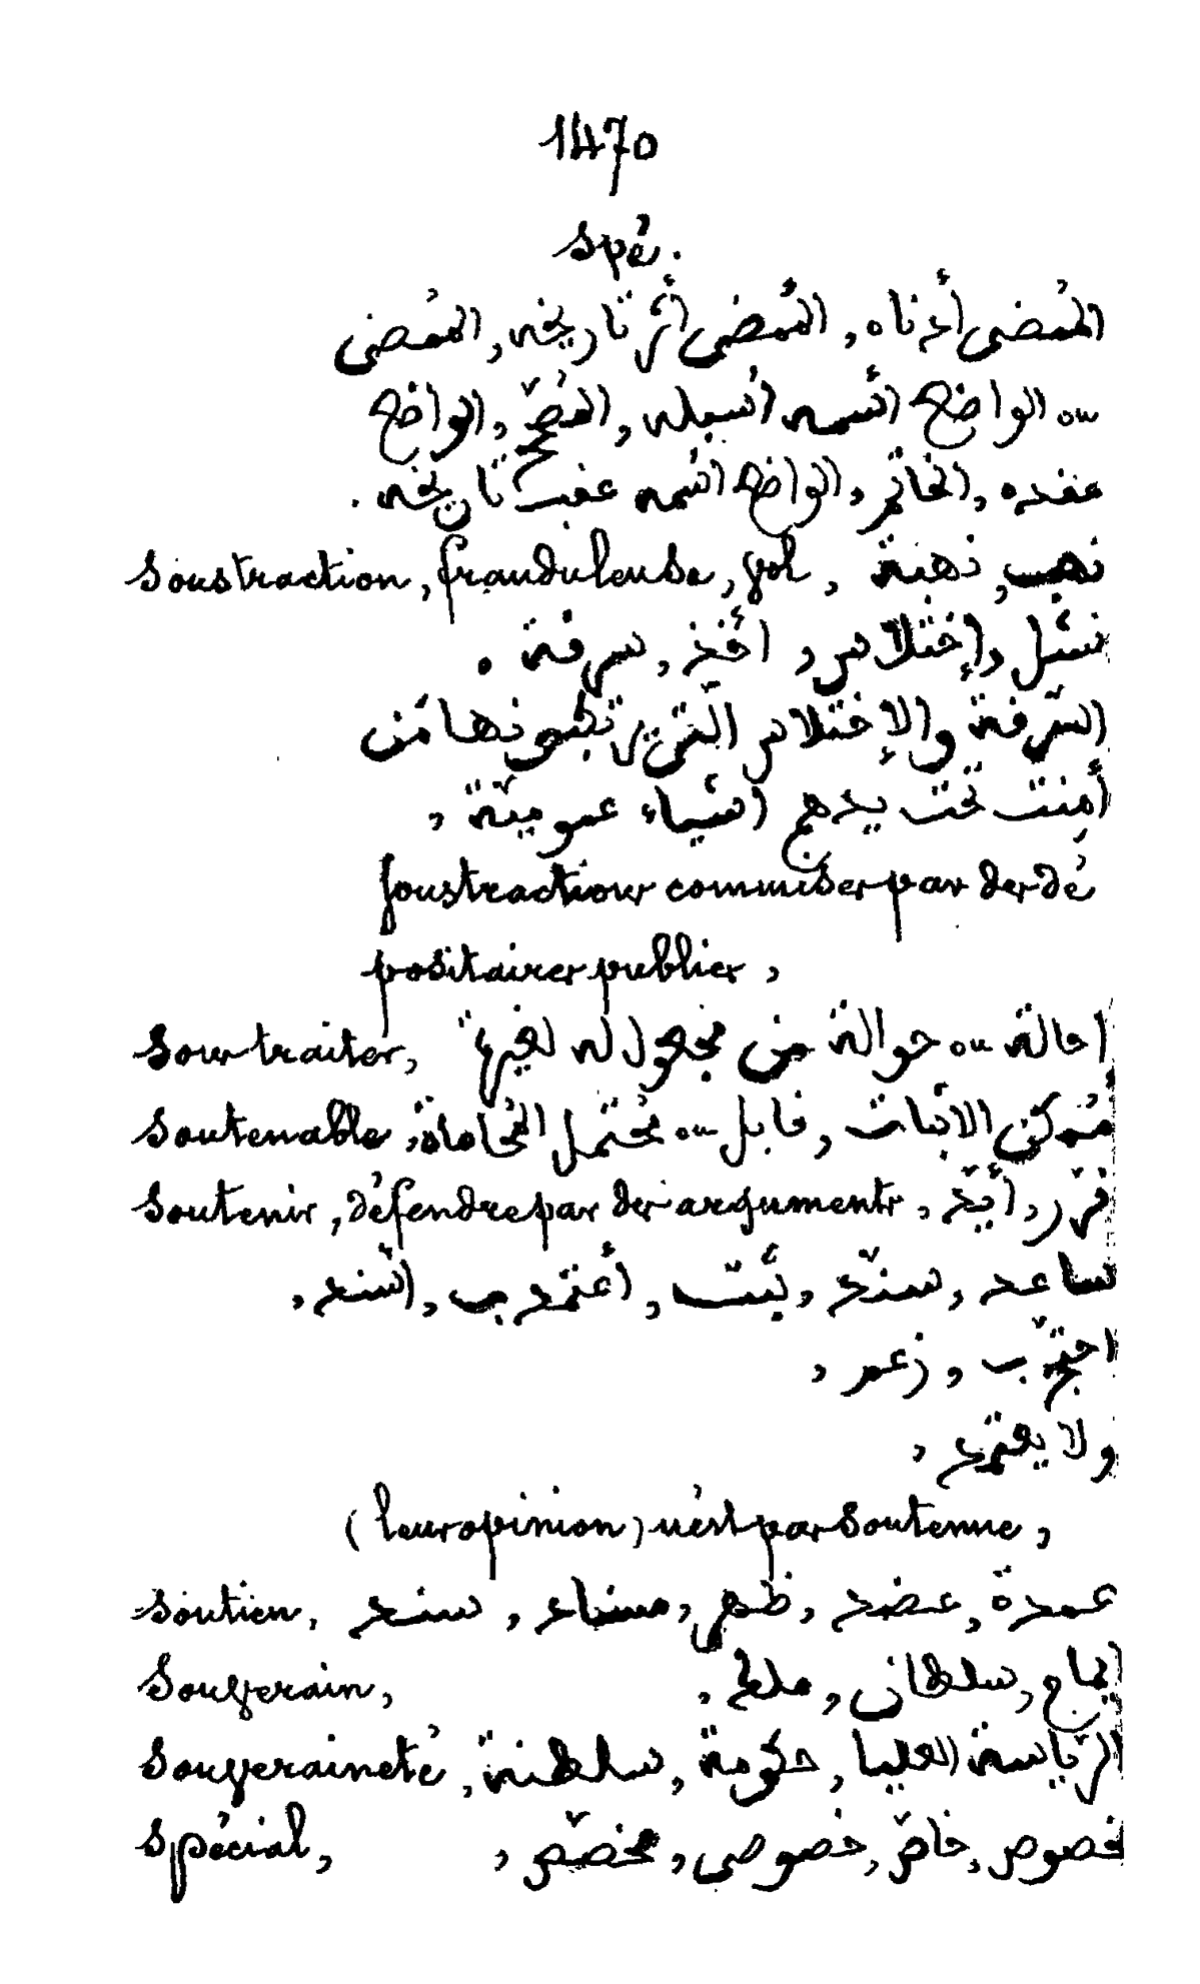 1470
spé.
المُمضى أدناه, المُمضى أثر تاريخه, المُمضى
ou الواضع اسمه أسفله, المصحّح, الواضع
عقده, الخاتم, الواضع اسمه عقب تاريخه.
soustraction, frauduleuse, vol, نهب, نهبة
نشل, إختلاس, أخذ, سرقة.
السّرقة والإختلاس الّتي يرتكبونها من
أمنت تحت يدهم أشياء عموميّة,
soustractions commises par des dé
positaires publics,
sous traiter, احالة ou حوالة من مجعول له لغيره
soutenable, مُمكن الاثبات, قابل ou محتمل المُحاماة,
soutenir, défendre par des arguments, قرّر, أيّد,
ساعد, سنّد, ثبّت, أعتمد ب, اسند,
احتجّ ب, زعم,
ولا يعتمد,
(leur opinion) n'est pas soutenue,
soutien, عمدة, عضد, ظهر, سناد, سند
souverain, سلطان, ملك,
souveraineté, الرّياسة العليا, حكومة, سلطنة,
spécial, خاصّ, خصوصي, مخصّص,